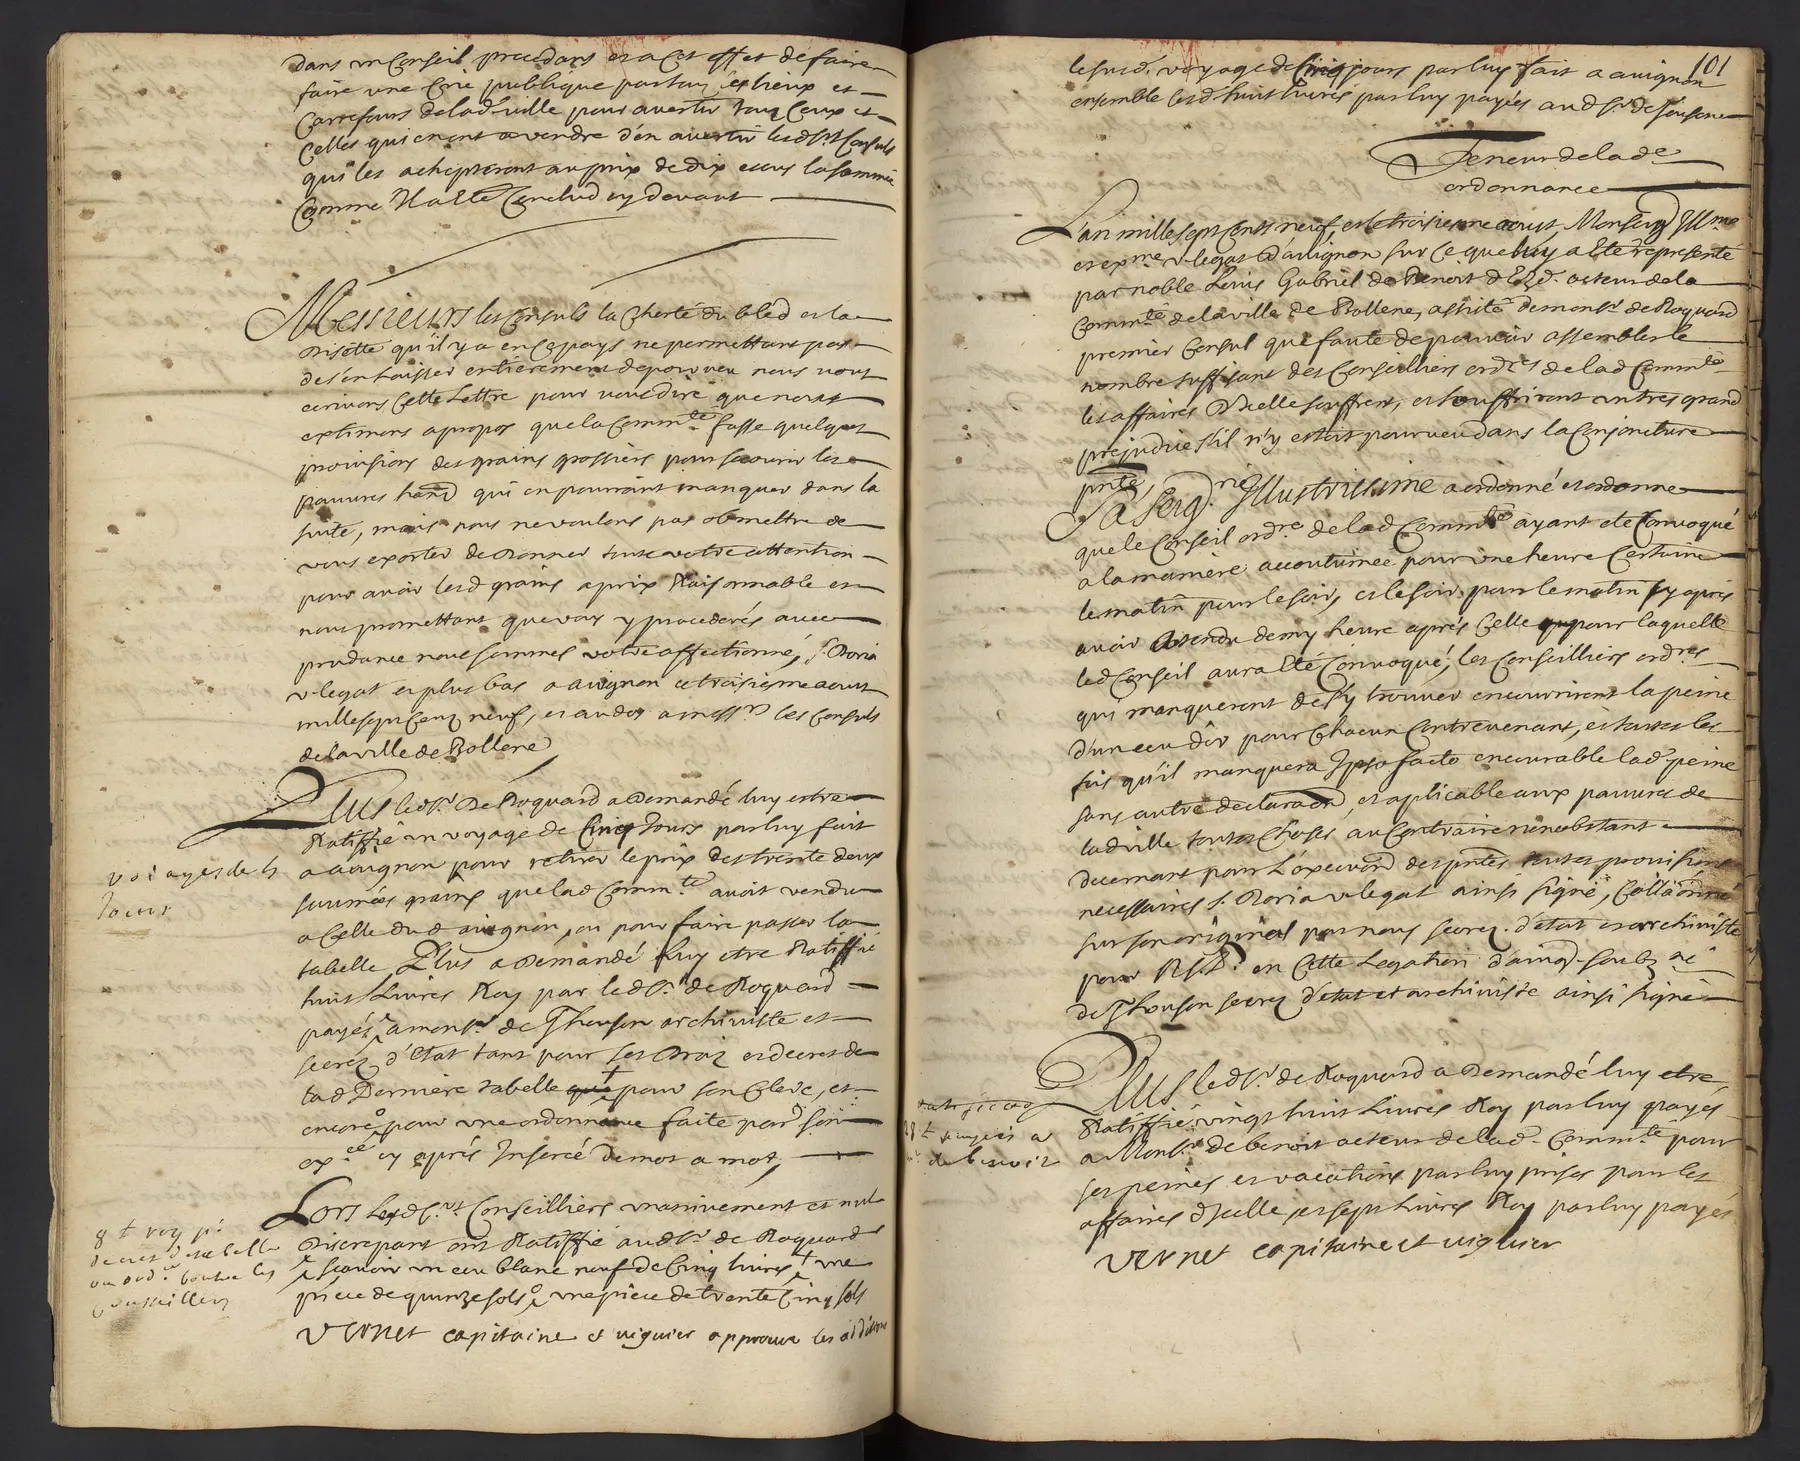 dans un Conseil precedans et a Cet effet de faire
faire une Crie publique par tous les lieux et
Carrefours de lad. ville pour avertir tous Ceux et
Celles qui en ont a vendre d'en avertir lesd. srs Consuls
qui les achepteront au prix de dix ecus la sommée
Comme a esté Conclud cy devant
Messieurs les Consuls la Cherté du bled et la
disette qu'il y a en Ce pays ne permettans pas
de s'en laisser entierement depourveu nous vous
ecrivons Cette Lettre pour vous dire que nous
extimons a propos que la Comm.té fasse quelques
provisions des grains grossiers pour secourir les
pauvres hans qui en pourroint manquer dans la
suite, mais nous ne voulons pas obmettre de
vous exorter de donner toute votre attention
pour avoir lesd. grains a prix Raisonnable et
nous promettans que vous y procederés avec
prudance nous sommes votre affectionné, s. Doria
v. legat et plus bas a avignon ce troisieme aoust
mille sept Cens neuf, et au dos a mess.rs les Consuls
de la ville de Bollene
Plus led. sr. De Roquard a Demandé luy estre
Ratiffié un voyage de Cinq Jours par luy fait
a avignon pour retirer le prix des trente deux
saumées grains que lad. Comm.té avoit vendu
a Celle dud. avignon, ou pour faire passer la
tabelle Plus a Demandé luy etre Ratiffié
huit Livres Roy par led. sr. de Roquard
payés a mons.r de Thouson archiviste et
secre.re d'Etat tant pour ses Droiz et decret de
lad. Derniere tabelle que pour son Clerc, et
encore pour une ordonnance faite par son
ex.ce cy aprés Inserée de mot a mot,
voiages de 5
Jours
Lors lesd. srs. Conseilliers unanimement et nul
Discrepant ont Ratiffié aud. sr. de Roquard
scavoir un ecu blanc neuf de Cinq livres + une
piece de quinze sols, une piece de trente Cinq sols
Vernet capitaine et viguier approuve les additions
8 l roy p.r
decret de tabelle
ou ord.ce Contre les
Conseillers
101
le susd. voyage de Cinq jours par luy fait a avignon
ensemble lesd. huit livres par luy payés aud. sr. de Jouson
Teneur de lad.e
ordonnance
L'an mille sept Cents neuf, et le troisieme aoust, Monseig.r Ill.me
et ex.me v. legat d'avignon sur Ce que luy a Eté representé
par noble Louis Gabriel de Benoit acteur de la
Comm.té de la ville de Bollene, assisté de mons.r de Roquard
premier Consul que faute de pouvoir assembler le
nombre suffisant des Conseilliers ord.res de lad. Comm.té
les affaires d'Icelle souffrent, et souffriront un tres grand
prejudice s'il n'y estoit pourveu dans la Conjoncture
p.nte,
Sa Seig.rie Illustrissime a ordonné et ordonne
que le Conseil ord.re de lad. Comm.té ayant eté Convoqué
a la maniere accoutumée pour une heure Certaine
le matin pour le soir, et le soir pour le matin sy aprés
avoir attendu demy heure aprés Celle pour laquelle
led. Conseil aura Eté Convoqué, les Conseilliers ord.res
qui manqueront de s'y trouver encourriront la peine
d'un ecu d'or pour Chacun Contrevenant, et toutes les
fois qu'il manquera Ipso facto encourable lad. peine
sans autre declara.on, et aplicable aux pauvres de
lad. ville toutes Choses au Contraire nonobstant
decernant pour L'execu.on des p.ntes toutes provisions
necessaires s. Doria v. legat ainsi signé, Colla.onné
sur son original par nous secre.re d'etat et archiviste
pour N.S.P. en Cette Legation d'avig.
de Thouson secre.re d'etat et archiviste ainsi signé
Plus led. sr. de Roquard a Demandé luy etre
Ratiffié vingt huit Livres Roy par luy payés
a Mons.r de benoit acteur de lad. Comm.té pour
ses peines et vacations par luy prises pour les
affaires d'Icelle, et sept Livres Roy par luy payés
Vernet capitaine et viguier
28 l payées a
de benoit